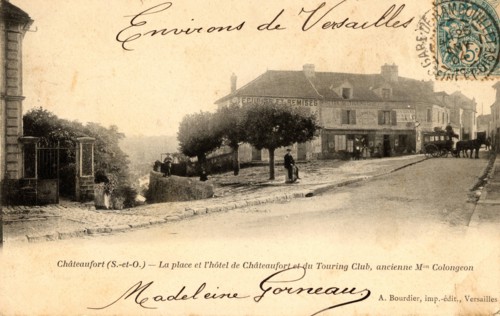 Environs de Versailles
RAMBOUILLET
SEINE-ET-OISE
5
Châteaufort (S.-et-O.) — La place et l'hôtel de Châteaufort et du Touring Club, ancienne Mon Colongeon
Madeleine Gorneau
A. Bourdier, imp.-édit., Versailles